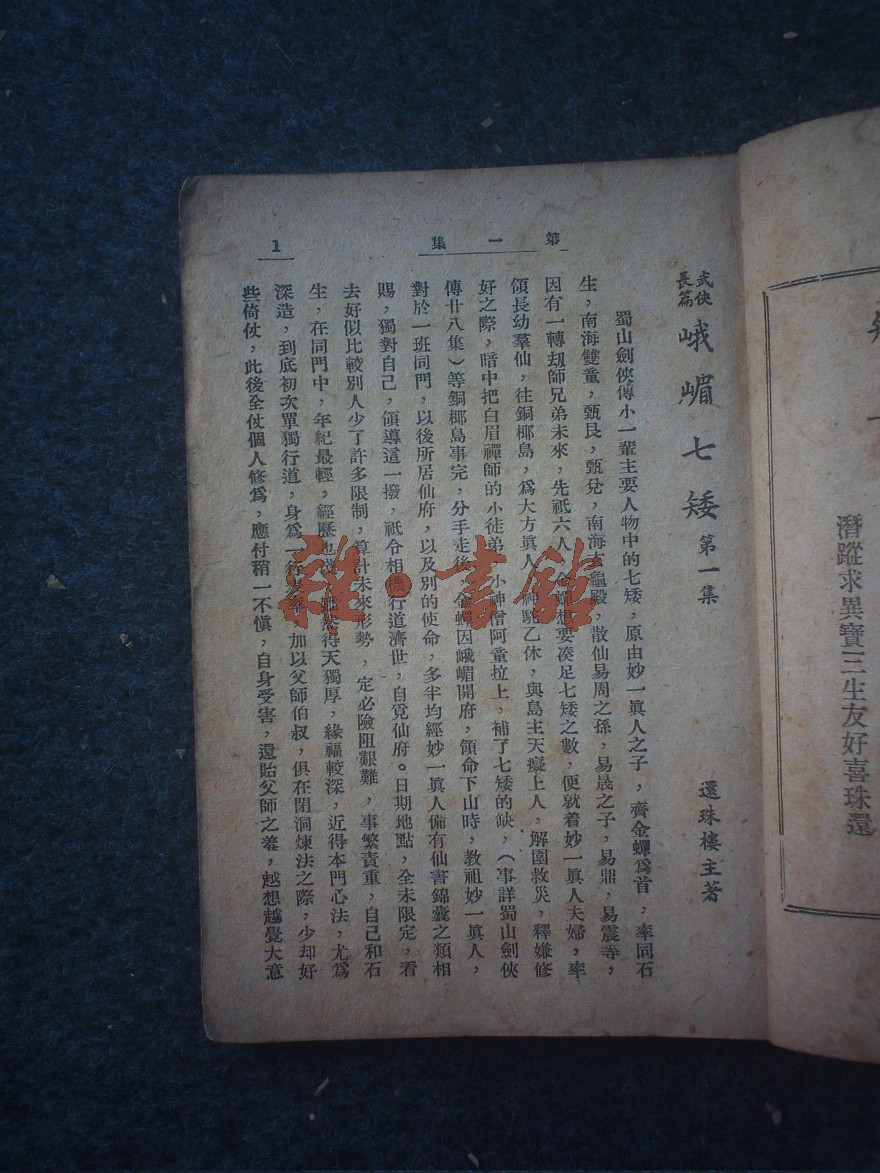 潛蹤求異寶三生友好喜珠還
武俠長篇 峨嵋七矮 第一集 還珠樓主著
第一集
1
蜀山劍俠傳小一輩主要人物中的七矮，原由妙一眞人之子，齊金蟬爲首，率同石
生，南海雙童，甄艮，甄兌，南海玄龜殿，散仙易周之孫，易晟之子，易鼎，易震等，
因有一轉刧師兄弟未來，先祇六人，金蟬想要凑足七矮之數，便就着妙一眞人夫婦，率
領長幼羣仙，往銅椰島，爲大方眞人神駝乙休，與島主天癡上人，解圍救災，釋嫌修
好之際，暗中把白眉禪師的小徒弟，小神僧阿童拉上，補了七矮的缺，（事詳蜀山劍俠
傳廿八集）等銅椰島事完，分手走後，金蟬因峨嵋開府，領命下山時，教祖妙一眞人，
對於一班同門，以後所居仙府，以及別的使命，多半均經妙一眞人備有仙書錦囊之類相
賜，獨對自己，領導這一撥，祇令相機行道濟世，自覓仙府。日期地點，全未限定，看
去好似比較別人少了許多限制，算計未來形勢，定必險阻艱難，事繁責重，自己和石
生，在同門中，年紀最輕，經歷也淺，雖然得天獨厚，緣福較深，近得本門心法，尤爲
深造，到底初次單獨行道，身爲一行表率，加以父師伯叔，俱在閉洞煉法之際，少却好
些倚仗，此後全仗個人修爲，應付稍一不愼，自身受害，還貽父師之羞，越想越覺大意
雜·書館